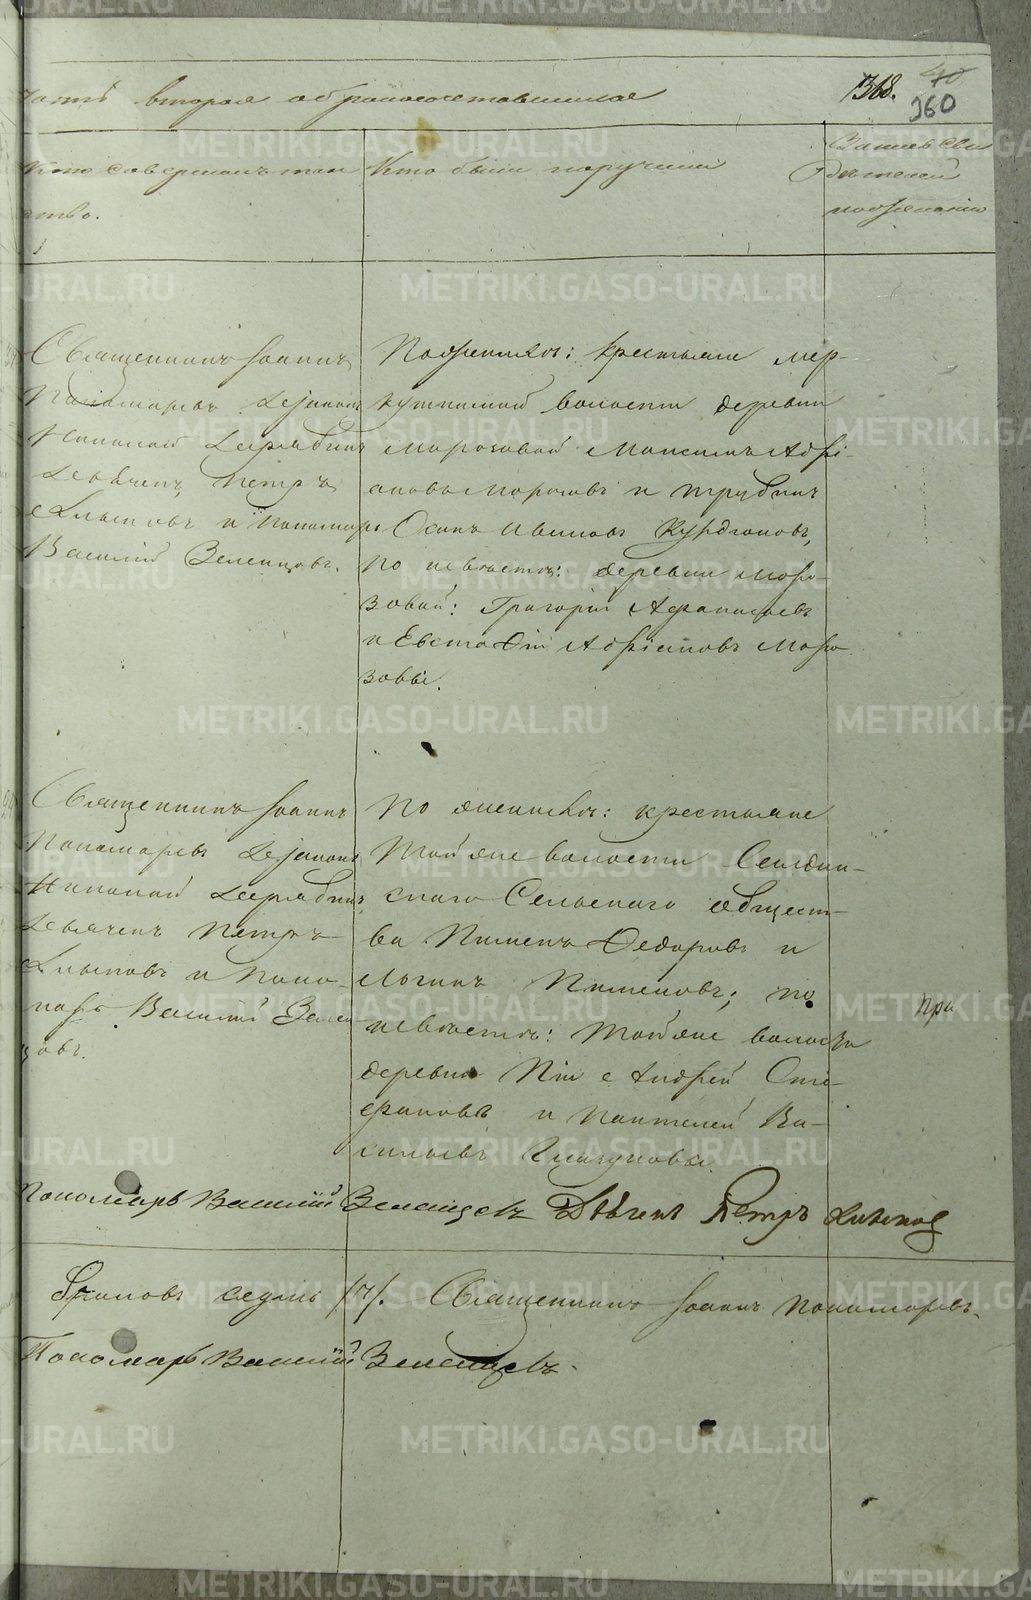 часть вторая о бракосочетавшихся
368. 40
360
Кто совершалъ таин
ство.
Кто были поручители
Запись сви
дѣтелей
по желанію
Священникъ Іоаннъ
Пономаревъ діаконъ
Николай Дерябинъ
дьячекъ Петръ
и Пономарь
Василій Зеленцовъ.
По женихѣ: крестьяне Мер-
кушинской волости деревни
Морозовой Максимъ Адрі-
ановъ Морозовъ и
Осипъ Ивановъ Курдюковъ,
по невѣстѣ: деревни Моро-
зовой: Григорій Афанасьевъ
и Евстафій Адріановъ Моро
зовы.
Священникъ Іоаннъ
Пономаревъ діаконъ
Николай Дерябинъ
дьячекъ Петръ
и Поно-
марь Василій Зелен
цовъ.
По женихѣ: крестьяне
той же волости
скаго Сельскаго общест-
ва Пименъ Федоровъ и
Логинъ Пименовъ; по
невѣстѣ: той же волости
деревни Андрей Сте-
фановъ и Пантелей Ва-
сильевъ Глазуновы.
при
Пономарь Василій Зеленцовъ Дьячекъ Петръ
Браковъ седмь /7/. Священникъ Іоаннъ Пономаревъ.
Пономарь Василій Зеленцовъ.
METRIKI.GASO-URAL.RU